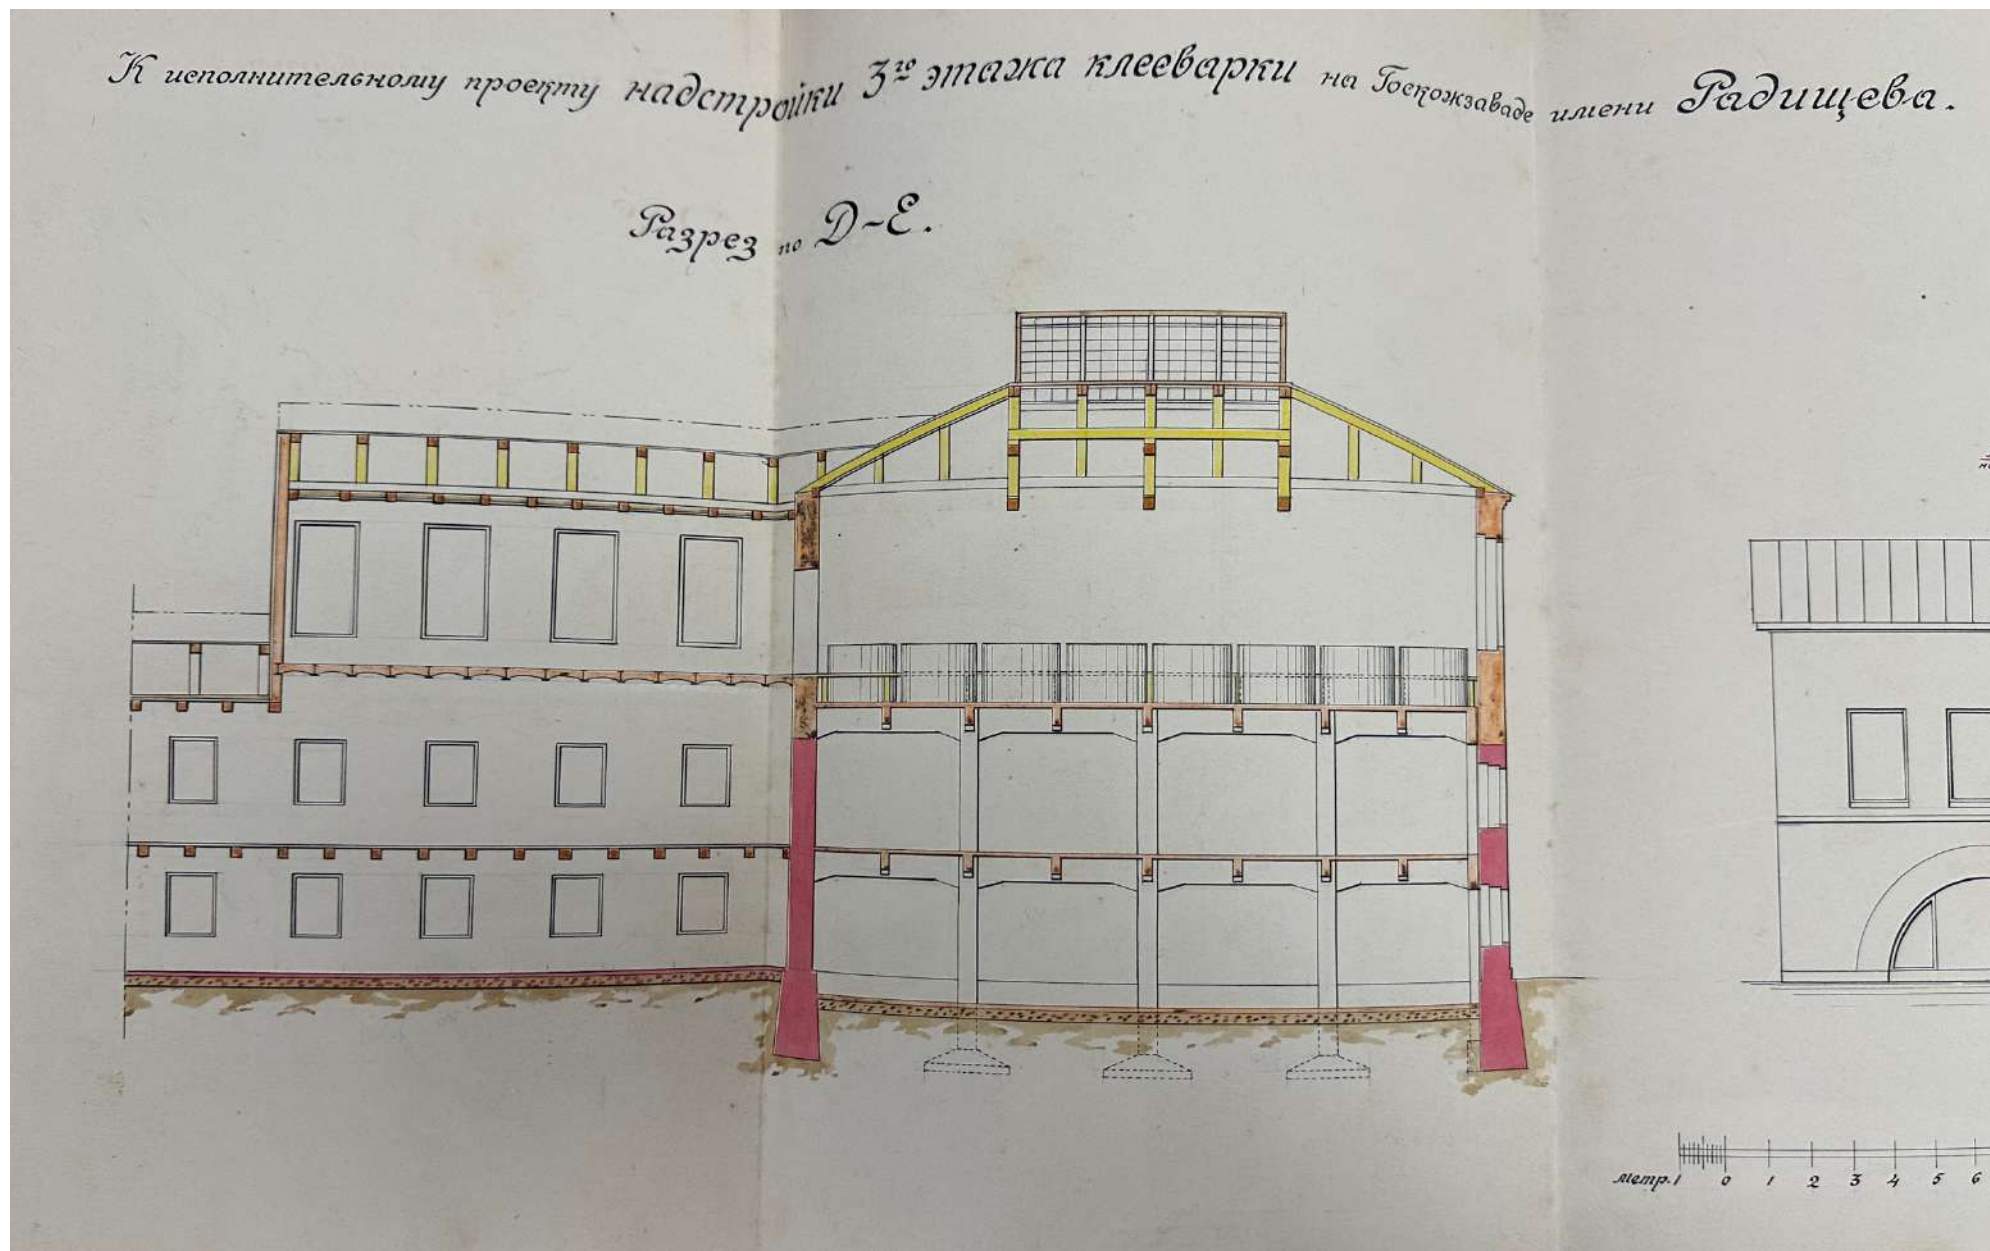 К исполнительному проекту надстройки 3го этажа клееварки на Госкожзаваде имени Радищева.
Разрез по Д-Е.
метр. 1 0 1 2 3 4 5 6